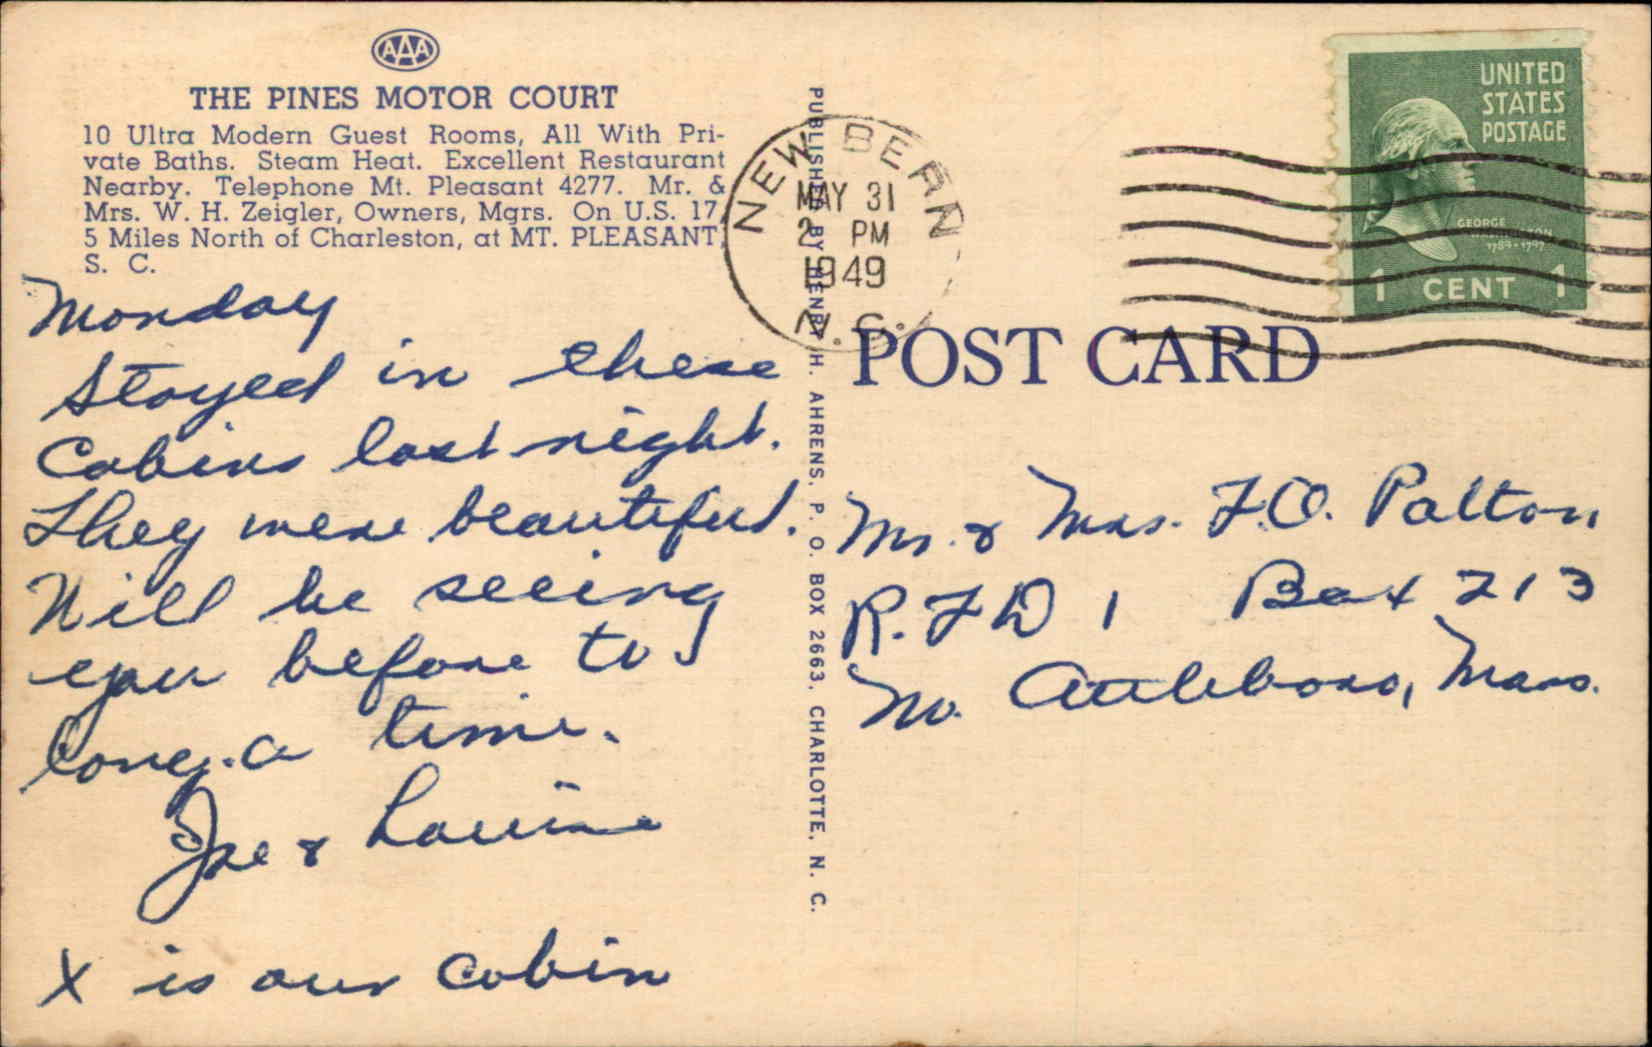 AAA
THE PINES MOTOR COURT
10 Ultra Modern Guest Rooms, All With Pri-
vate Baths. Steam Heat. Excellent Restaurant
Nearby. Telephone Mt. Pleasant 4277. Mr. &
Mrs. W. H. Zeigler, Owners, Mgrs. On U.S. 17,
5 Miles North of Charleston, at MT. PLEASANT,
S. C.
Monday
Stayed in these
Cabins last night.
They were beautiful.
Will be seeing
you before to
long a time.
Joe & Louise
X is our Cabin
PUBLISHED BY HENRY H. AHRENS, P. O. BOX 2663, CHARLOTTE, N. C.
NEW BERN
MAY 31
2 PM
1949
N.C.
UNITED
STATES
POSTAGE
GEORGE
WASHINGTON
1789-1797
1 CENT 1
POST CARD
Mr. & Mrs. F.O. Patton
R. F D 1 Box 213
No. Attleboro, Mass.